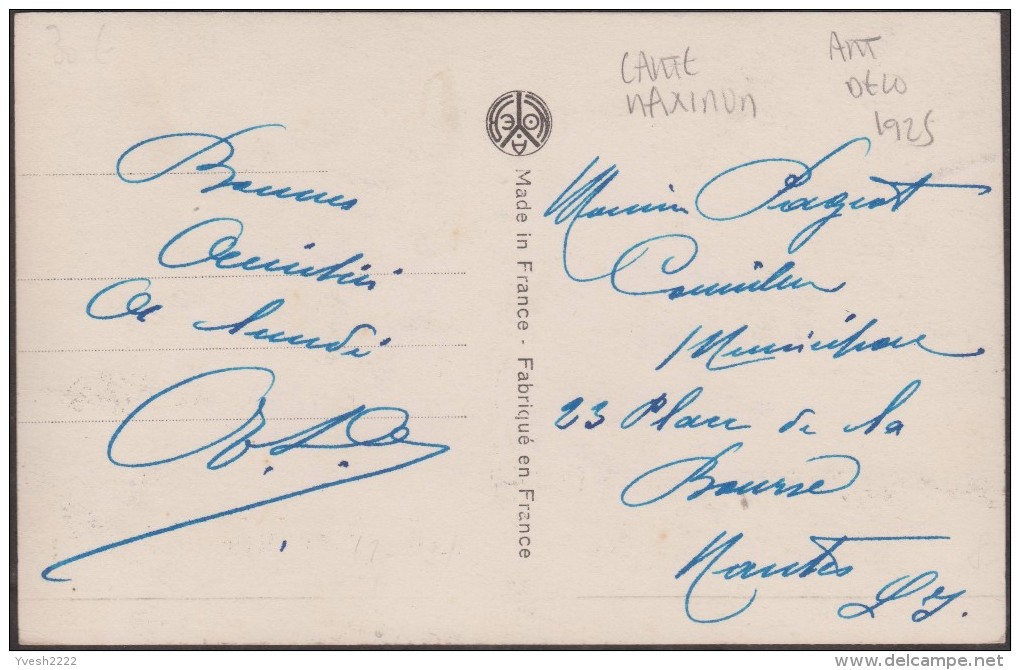 30 €
CARTE
MAXIMUM
ART
DECO
1925
Bonnes
Amitiés
de lundi
Made in France - Fabriqué en France
Pageot
Conseiller
Municipal
23 Place de la
Bourse
Nantes
L I.
Yvesh2222
delcampe.net